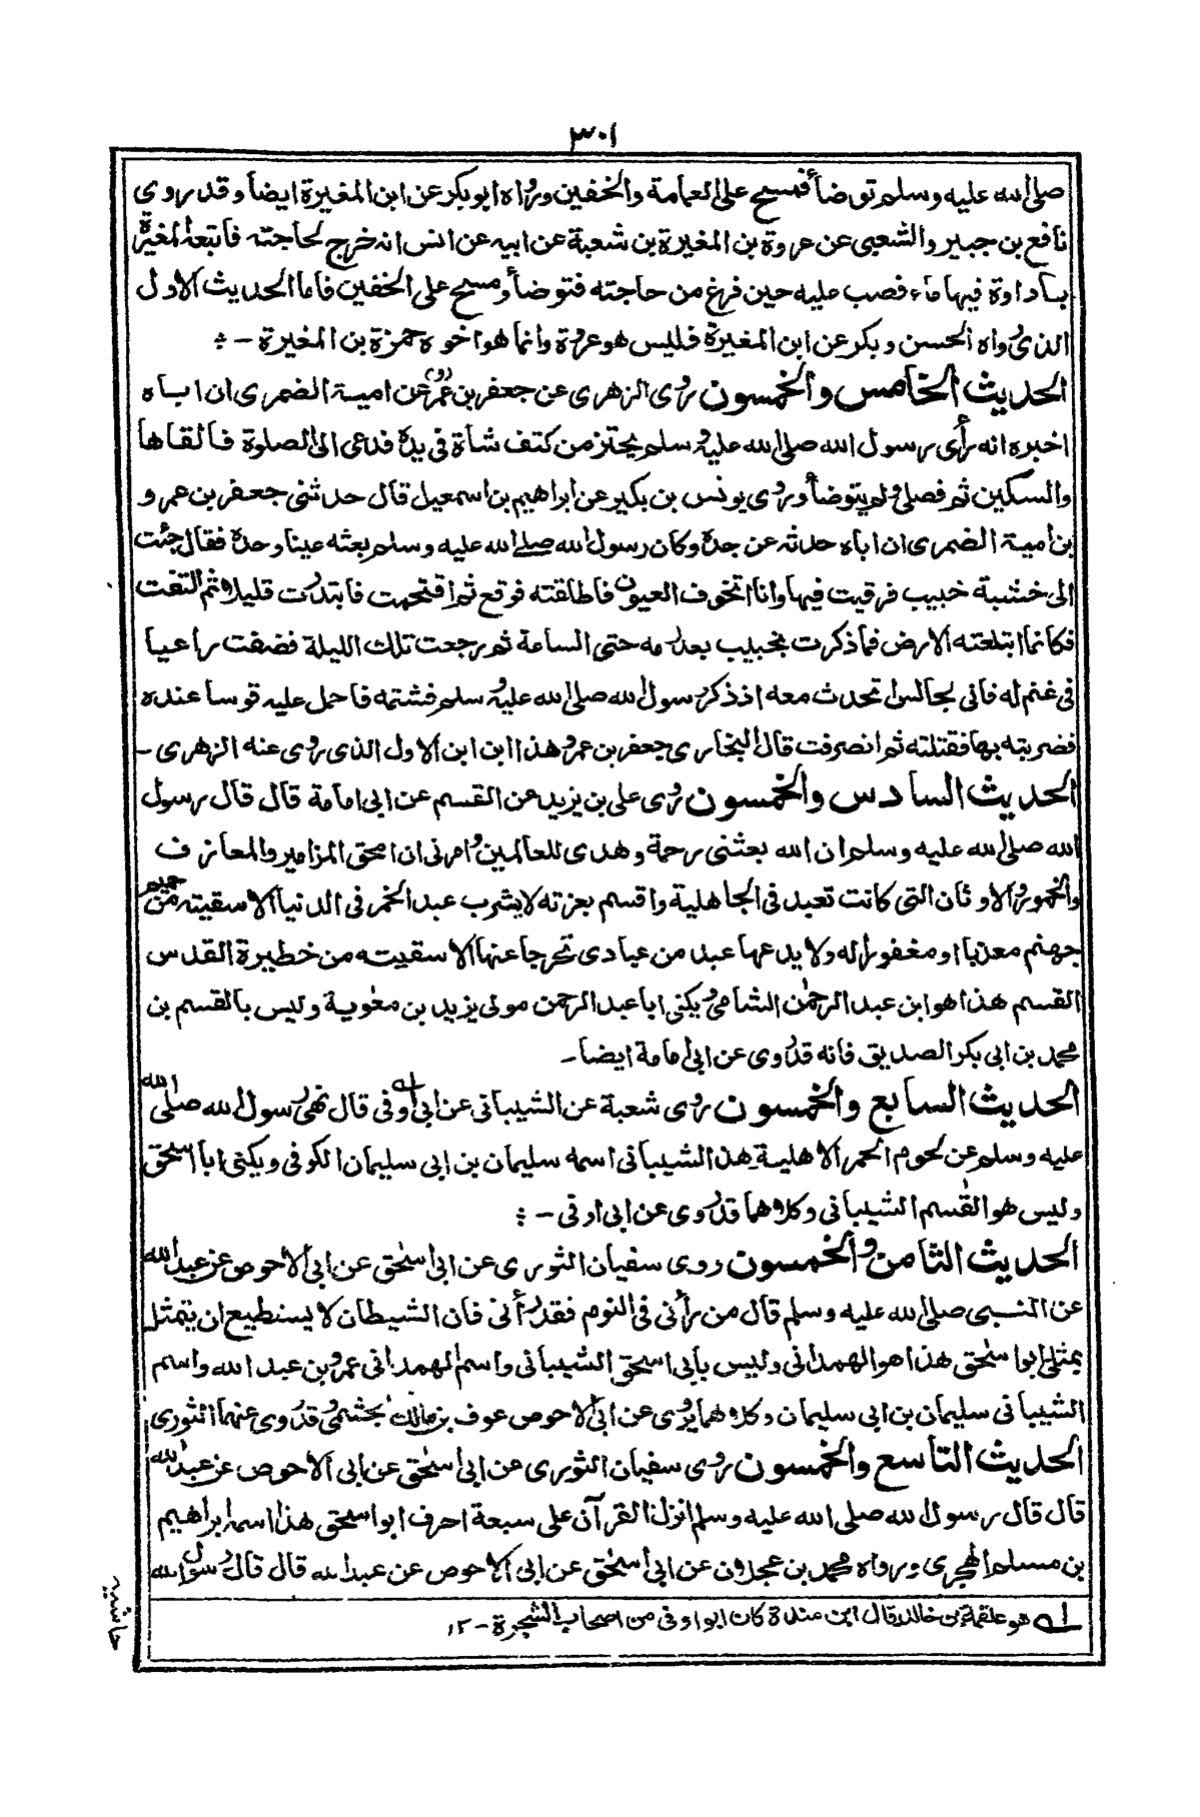 ٣٠١
صلى الله عليه وسلم توضأ فمسح على العمامة والخفين ورواه ابوبكر عن ابن المغيرة ايضا وقد روى
نافع بن جبير والشعبى عن عروة بن المغيرة بن شعبة عن ابيه عن انس انه خرج لحاجته فاتبعه المغيرة
باداوة فيها ماء فصب عليه حين فرغ من حاجته فتوضأ ومسح على الخفين فاما الحديث الاول
الذى رواه الحسن وبكر عن ابن المغيرة فليس هو عروة وانما هو اخوه حمزة بن المغيرة -
الحديث الخامس والخمسون روى الزهرى عن جعفر بن عمر(و) عن امية الضمرى ان اباه
اخبره انه رأى رسول الله صلى الله عليه وسلم يحتز من كتف شاة فى يده فدعى الى الصلوة فالقاها
والسكين ثم فصلى ولم يتوضأ وروى يونس بن بكير عن ابراهيم بن اسمعيل قال حدثنى جعفر بن عمرو
بن امية الضمرى ان اباه حدثه عن جده وكان رسول الله صلى الله عليه وسلم بعثه عينا وحده فقال جئت
الى خشبة خبيب فرقيت فيها وانا اتخوف العيون فاطلقته فوقع ثم اقتحمت فابتدرت قليلا ثم التفت
فكانما ابتلعته الارض فما ذكرت بخبيب بعد رمه حتى الساعة ثم رجعت تلك الليلة فضفت راعيا
فى غنم له فانى لجالس اتحدث معه اذ ذكر رسول الله صلى الله عليه وسلم فشتمه فاحمل عليه قوسا عنده
فضربته بها فقتلته ثم انصرفت قال البخارى جعفر بن عمرو هذا ابن ابن الاول الذى روى عنه الزهرى -
الحديث السادس والخمسون روى على بن يزيد عن القسم عن ابى امامة قال قال رسول
الله صلى الله عليه وسلم ان الله بعثنى رحمة وهدى للعالمين وامرنى ان امحق المزامير والمعازف
والخمور والاوثان التى كانت تعبد فى الجاهلية واقسم بعزته لا يشرب عبد الخمر فى الدنيا الا سقيته من حميم
جهنم معذبا او مغفورا له ولا يدعها عبد من عبادى تحرجا عنها الا سقيته من خطيرة القدس
القسم هذا هو ابن عبد الرحمٰن الشامى ويكنى ابا عبد الرحمن مولى يزيد بن معٰوية وليس بالقسم بن
محمد بن ابى بكر الصديق فانه قد روى عن ابى امامة ايضا -
الحديث السابع والخمسون روى شعبة عن الشيبانى عن ابى اوفى قال نهى رسول الله صلى الله
عليه وسلم عن لحوم الحمر الاهلية هذا الشيبانى اسمه سليمان بن ابى سليمان الكوفى ويكنى ابا اسحٰق
وليس هو القٰسم الشيبانى وكلاهما قد روى عن ابى اوفى -
الحديث الثامن والخمسون روى سفيان الثورى عن ابى اسحٰق عن ابى الاحوص عن عبد الله
عن النبى صلى الله عليه وسلم قال من رأنى فى النوم فقد رأنى فان الشيطان لا يستطيع ان يتمثل
بمثلى ابو اسحٰق هذا هو الهمدانى وليس بابى اسحق الشيبانى واسم الهمدانى عمرو بن عبد الله واسم
الشيبانى سليمان بن ابى سليمان وكلاهما يروى عن ابى الاحوص عوف بن مالك بجشمى وقد روى عنهما الثورى
الحديث التاسع والخمسون روى سفيان الثورى عن ابى اسحٰق عن ابى الاحوص عن عبد الله
قال قال رسول الله صلى الله عليه وسلم انزل القرآن على سبعة احرف ابو اسحٰق هذا اسمه ابراهيم
بن مسلم الهجرى ورواه محمد بن عجلان عن ابى اسحٰق عن ابى الاحوص عن عبد الله قال قال رسول الله
له هو علقمة بن خالد قال ابن مندة كان ابو اوفى من اصحاب الشجرة - ١٢
حاشيه